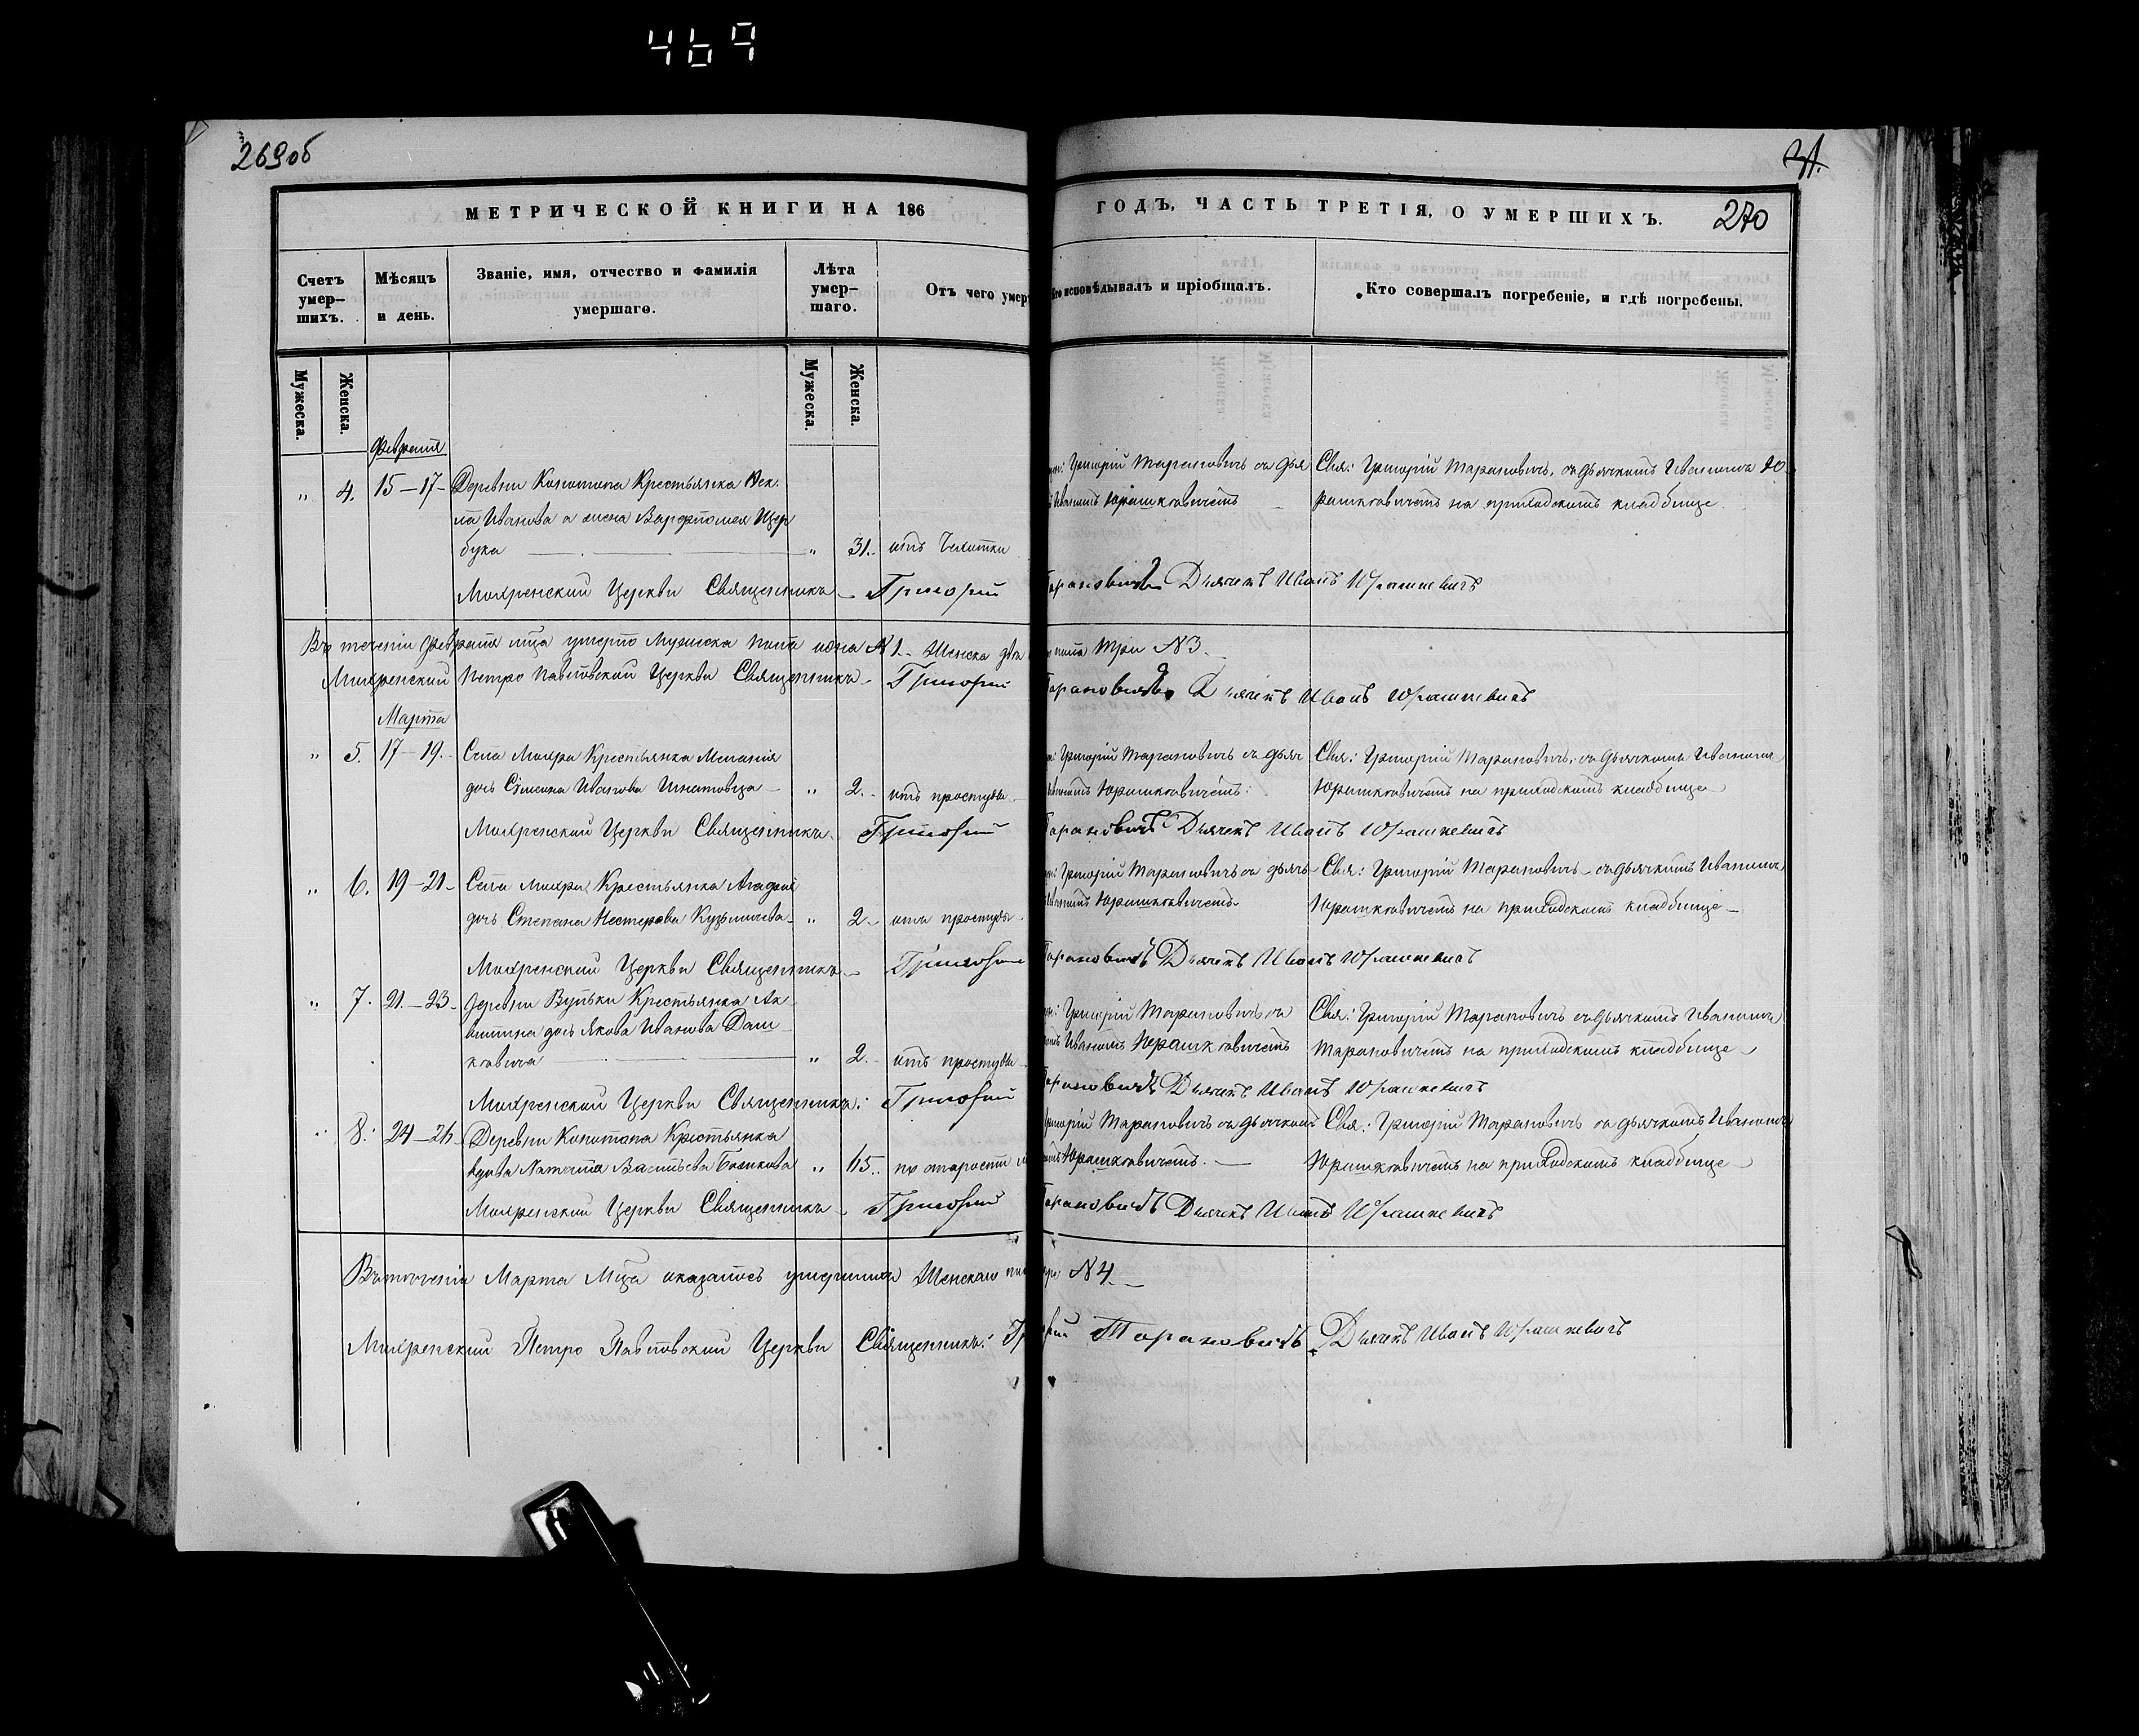 469
269об
31.
МЕТРИЧЕСКОЙ КНИГИ НА 186
ГОДЪ, ЧАСТЬ ТРЕТІЯ, О УМЕРШИХЪ.
270
Счетъ умер-шихъ.
Мѣсяцъ и день.
Званіе, имя, отчество и фамилія умершаго.
Лѣта умер-шаго.
Отъ чего умер
исповѣдывалъ и пріобщалъ.
Кто совершалъ погребеніе, и гдѣ погребены.
Мужеска.
Женска.
Мужеска.
Женска.
Февраля
„ 4. 15-17- Деревни Копотопа Крестьянка
Иванова жена Варфоломея Щер
бука „ 31. отъ чахотки
Григорій Тарановичъ съ дья
Иваномъ Юрашкевичемъ
Свя: Григорій Тарановичъ, съ дьячкомъ Иваномъ Ю
рашкевичемъ на приходскомъ кладбище.
Мокренской Церкви Священникъ Григорий Тарановичъ Дьячекъ Иванъ Юрашкевичъ
Въ теченіи Февраля мца умерло Мужеска пола одна №1. Женска пола три №3.
Мокренской Петро Павловской Церкви Священникъ Григорий Тарановичъ Дьячекъ Иванъ Юрашкевичъ
Марта
„ 5. 17-19. Села Мокра Крестьянка Меланія
дочь Сімеона Иванова Игнатовца „ 2. отъ простуды
Григорій Тарановичъ съ дьяч
Юрашкевичемъ
Свя: Григорій Тарановичъ, съ дьячкомъ Иваномъ
Юрашкевичемъ на приходскомъ кладбище
Мокренской Церкви Священникъ Григорий Тарановичъ Дьячекъ Иванъ Юрашкевичъ
„ 6. 19-21- Села Мокра Крестьянка
дочь Степана Нестерова Кузьмичева „ 2. отъ простуды
Григорій Тарановичъ съ дьяч
Юрашкевичемъ
Свя: Григорій Тарановичъ съ дьячкомъ Иваномъ
Юрашкевичемъ на приходскомъ кладбище
Мокренской Церкви Священникъ Григорий Тарановичъ Дьячекъ Иванъ Юрашкевичъ
„ 7. 21-23- Деревни Вульки Крестьянка Ак
вилина дочь Якова Иванова Даш
кевича „ 2. отъ простуды
Григорій Тарановичъ съ
Иваномъ Юрашкевичемъ
Свя: Григорій Тарановичъ съ дьячкомъ Иваномъ
Тарановичемъ на приходскомъ кладбище
Мокренской Церкви Священникъ: Григорий Тарановичъ Дьячекъ Иванъ Юрашкевичъ
8. 24-26 Деревни Копотопа Крестьянка
вдова Васильева „ 65. по старости
Григорій Тарановичъ съ дьячкомъ
Юрашкевичемъ.
Свя: Григорій Тарановичъ съ дьячкомъ Иваномъ
Юрашкевичемъ на приходскомъ кладбище
Мокренской Церкви Священникъ Григорий Тарановичъ Дьячекъ Иванъ Юрашкевичъ
Въ теченіи Марта Мца оказалось умершихъ Женскаго №4.
Мокренской Петро Павловской Церкви Священникъ: Тарановичъ Дьячекъ Иванъ Юрашкевичъ